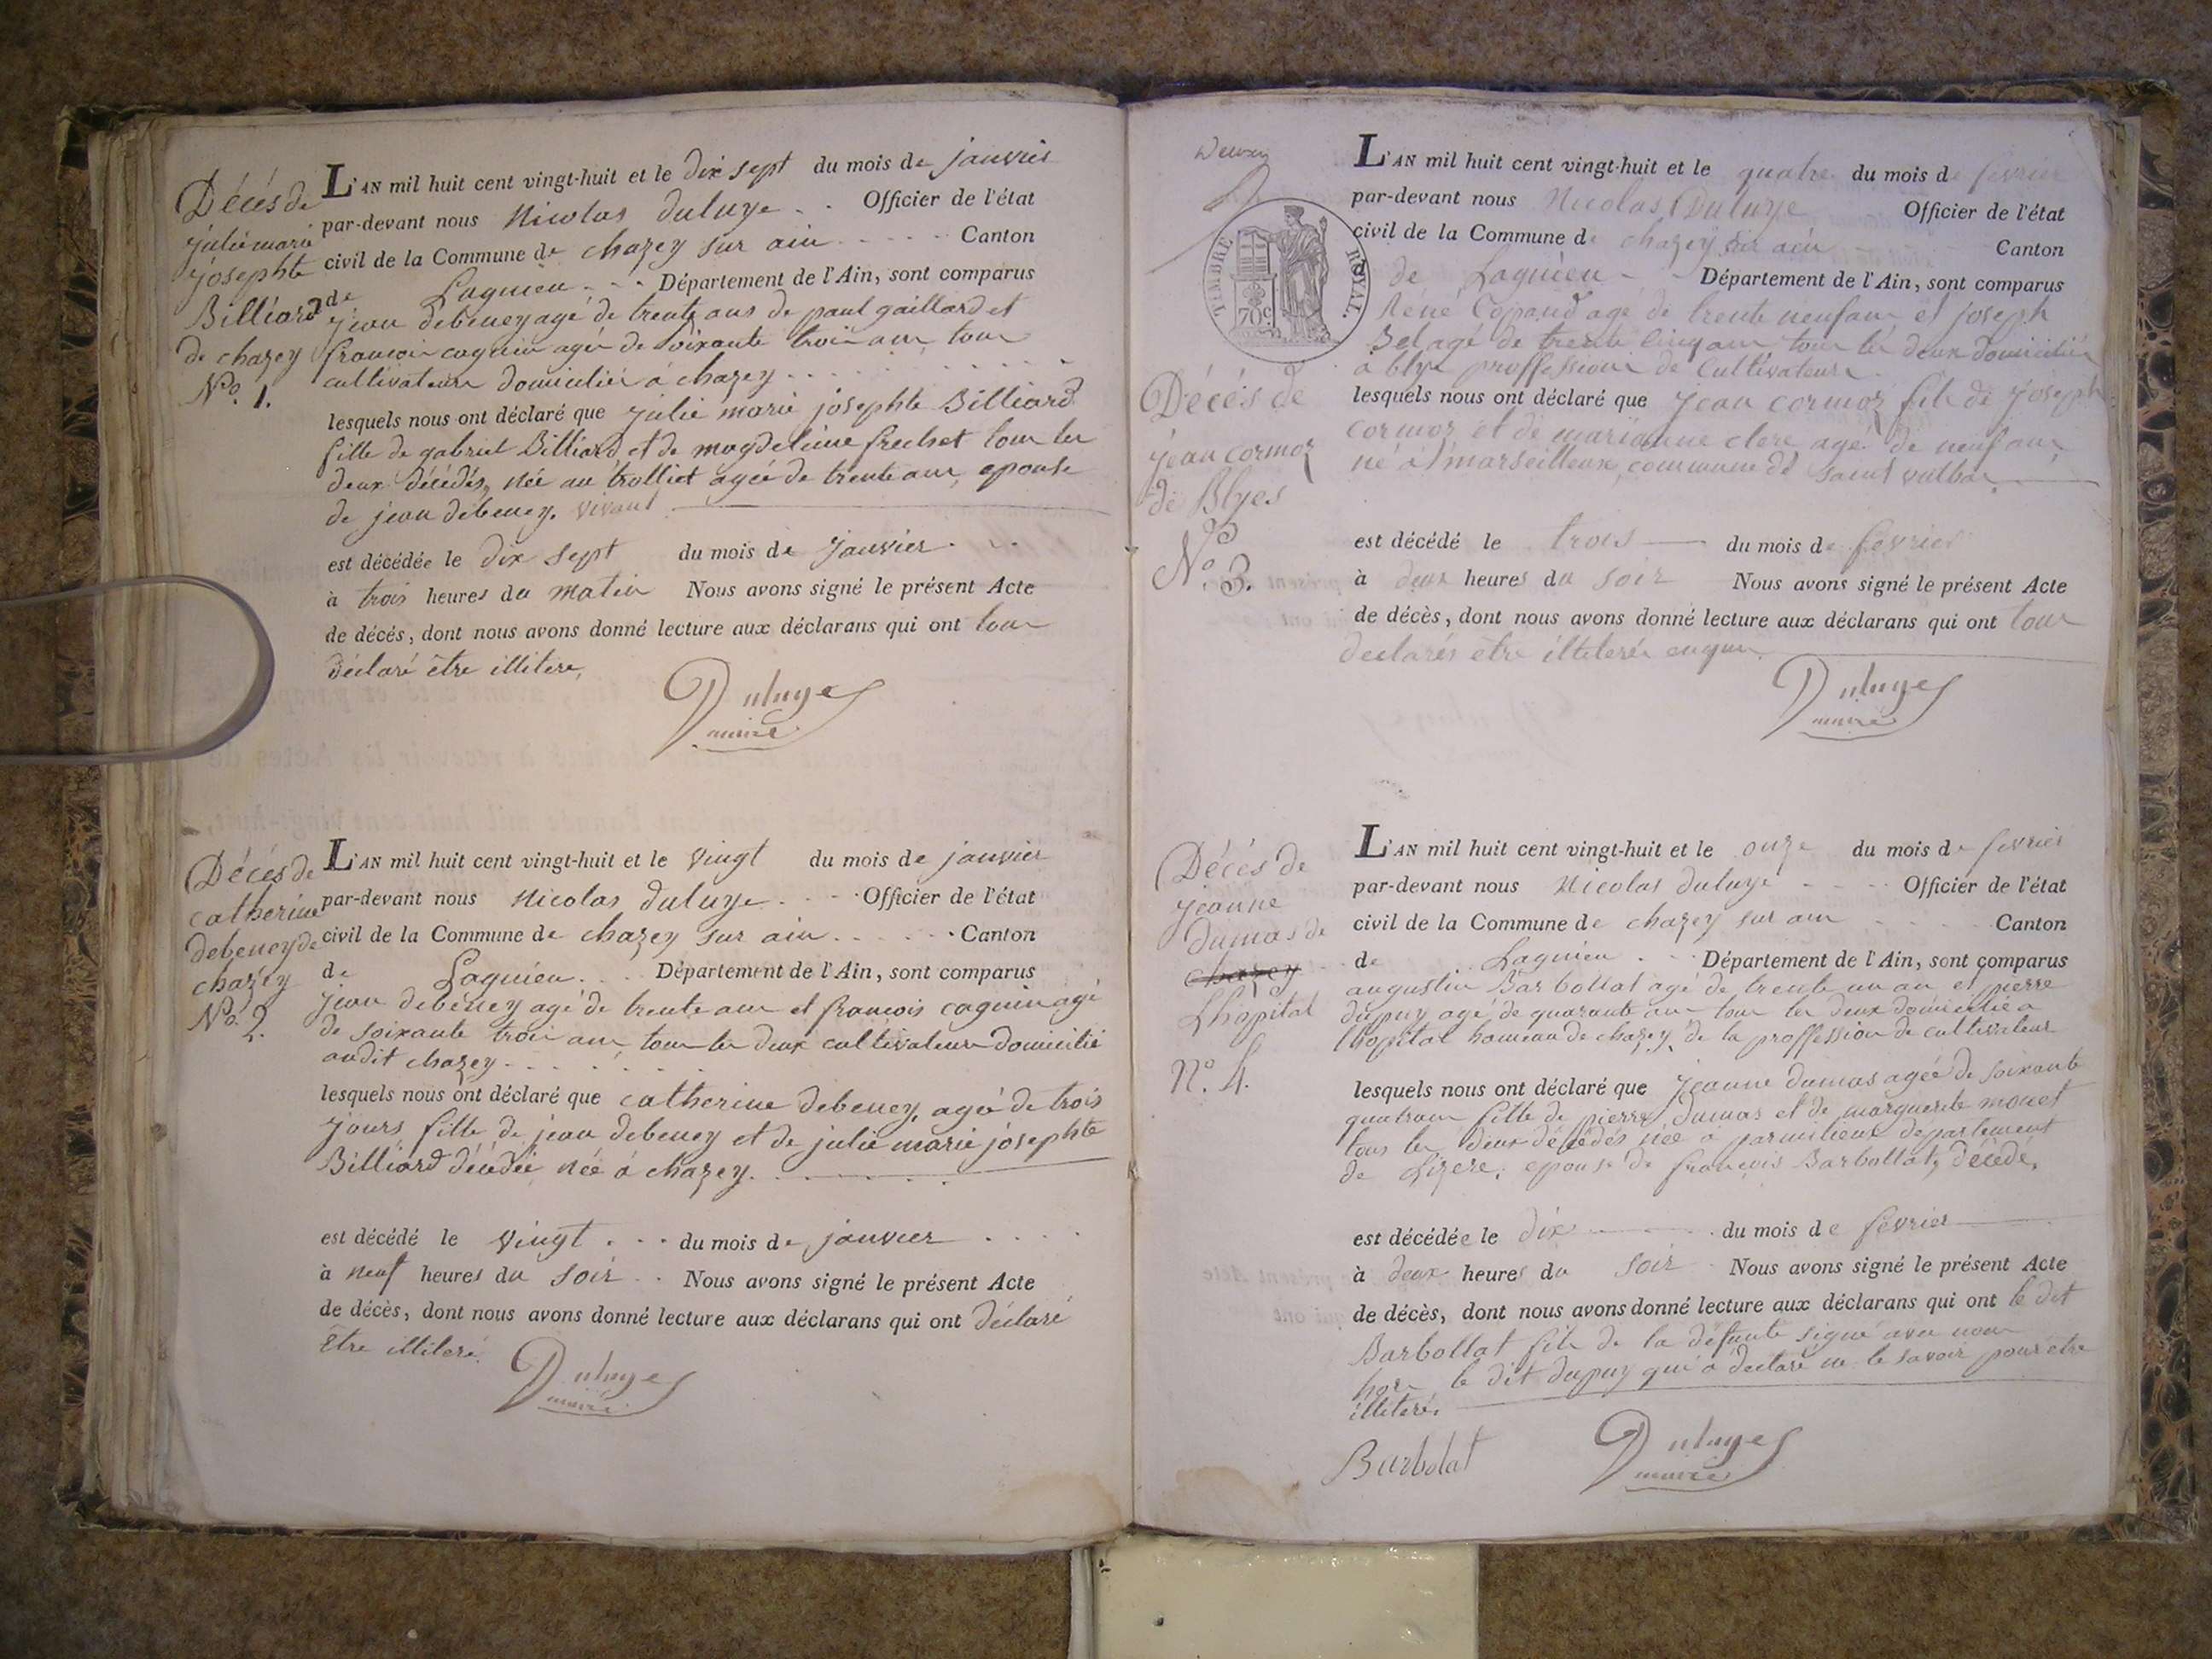 Décés de
julie marie
josephte
Billiard
de chazey
N.º 1.
L'AN mil huit cent vingt-huit et le dix sept du mois de janvier
par-devant nous Nicolas duluye . . Officier de l'état
civil de la Commune de chazey sur ain . . . . . Canton
de Lagnieu . . . Département de l'Ain, sont comparus
jean debeney agé de trente ans de paul gaillard et
francois coquin agée de soixante trois ans, tous
cultivateurs domiciliés á chazey . . . . . . . . .
lesquels nous ont déclaré que julie marie josephte Billiard
fille de gabriel Billiard et de magdeleine frechet tous les
deux décédés, née au trolliet agée de trente ans, epouse
de jean debeney. vivant
est décédée le dix sept du mois de janvier . . .
à trois heures du matin Nous avons signé le présent Acte
de décés, dont nous avons donné lecture aux déclarans qui ont tous
déclaré être illitere,
Duluye
maire
Décés de
catherine
debeney de
chazey
N.º 2.
L'AN mil huit cent vingt-huit et le vingt du mois de janvier
par-devant nous Nicolas duluye . . . Officier de l'état
civil de la Commune de chazey sur ain . . . . . . Canton
de Lagnieu . . . Département de l'Ain, sont comparus
jean debeney agé de trente ans et francois coquin agé
de soixante trois ans, tous les deux cultivateurs domicilié
audit chazey . . . . . . . .
lesquels nous ont déclaré que catherine debeney, agée de trois
jours fille de jean debeney et de julie marie josephte
Billiard décédée, née á chazey. . . . . . .
est décédé le vingt . . . du mois de janvier . . . .
à neuf heures du soir . . Nous avons signé le présent Acte
de décès, dont nous avons donné lecture aux déclarans qui ont déclaré
être illiteré.
Duluye
maire
TIMBRE ROYAL.
70c.
Décés de
jean cormoz
de Blyes
N.º 3.
L'AN mil huit cent vingt-huit et le quatre du mois de fevrier
par-devant nous Nicolas Duluye Officier de l'état
civil de la Commune de chazey sur ain Canton
de Lagnieu - - Département de l'Ain, sont comparus
René Copand agé de trente neuf ans et joseph
Bel agé de trente cinq ans tous les deux domiciliés
a blye proffession de cultivateurs
lesquels nous ont déclaré que jean cormoz fils de joseph
cormoz et de marianne clere agé de neuf ans,
né á marseilleux, commune de saint vulbas
est décédé le trois du mois de fevrier
à deux heures du soir Nous avons signé le présent Acte
de décès, dont nous avons donné lecture aux déclarans qui ont tous
declarés être illiterés
Duluye
maire
Décés de
jeanne
dumas de
chazey
Lhopital
N.º 4.
L'AN mil huit cent vingt-huit et le onze du mois de fevrier
par-devant nous Nicolas duluye - - - Officier de l'état
civil de la Commune de chazey sur ain . . . . Canton
de Lagnieu . . Département de l'Ain, sont comparus
augustin Barbollat agé de trente un an et pierre
dupuy agé de quarante ans tous les deux domicilié a
lhopital hameau de chazey, de la proffession de cultivateur
lesquels nous ont déclaré que jeanne dumas agée de soixante
quatre ans fille de pierre dumas et de marguerite monet
tous les deux décédés née a parmilieux departement
de Lizere, epouse de françois Barbollat, décédé,
est décédée le dix du mois de fevrier
à deux heures du soir Nous avons signé le présent Acte
de décès, dont nous avons donné lecture aux déclarans qui ont le dit
Barbollat fils de la defunte signé avec nous
hors le dit dupuy qui á declaré ne le savoir pour etre
illiteré.
Burbolat
Duluye
maire